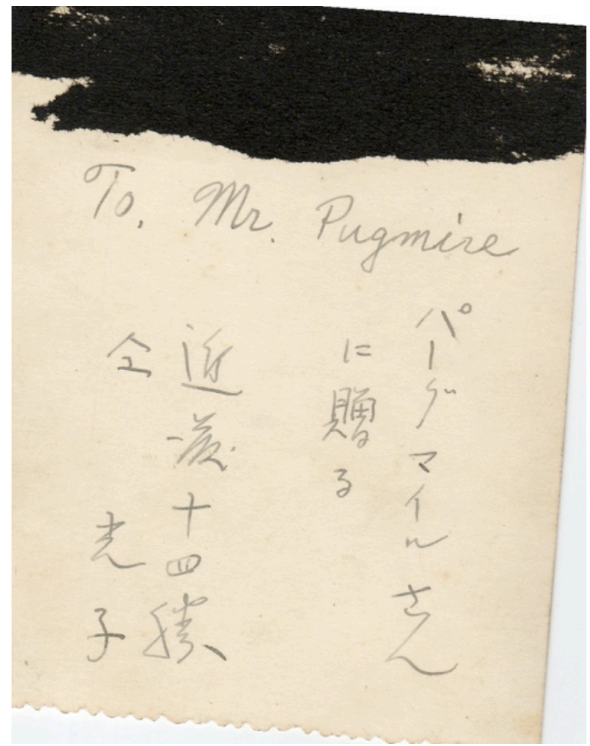 To, Mr. Pugmire
パーグマイルさん
に贈る
近藤十四勝
仝 光子